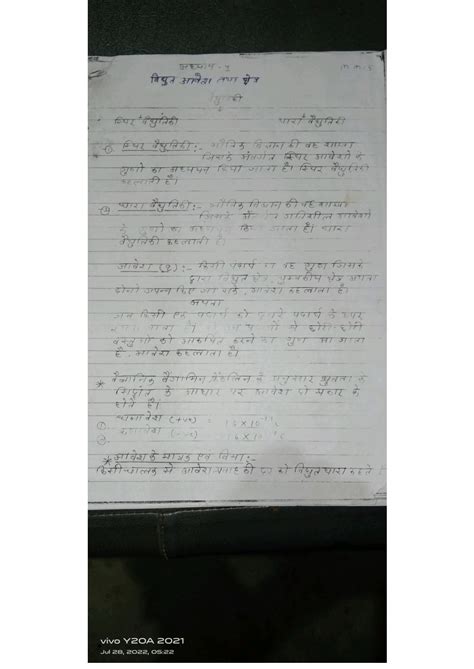 अध्याय - 1
विद्युत आवेश तथा क्षेत्र
वैद्युतिकी
स्थिर वैद्युतिकी धारा वैद्युतिकी
① स्थिर वैद्युतिकी :- भौतिक विज्ञान की वह शाखा
जिसके अंतर्गत स्थिर आवेशो के
गुणों का अध्ययन किया जाता है। स्थिर वैद्युतिकी
कहलाती है।
② धारा वैद्युतिकी :- भौतिक विज्ञान की वह शाखा
जिसके गतिशील आवेशो
के गुणों का अध्ययन किया जाता है। धारा
वैद्युतिकी कहलाती है।
आवेश (q) :- किसी पदार्थ का वह गुण जिसके
द्वारा विद्युत क्षेत्र, चुम्बकीय क्षेत्र अथवा
दोनो उत्पन्न किए जा सके, आवेश कहलाता है।
अथवा
जब किसी एक पदार्थ को दूसरे पदार्थ के ऊपर
जाता है। छोटी-छोटी
वस्तुओं को आकर्षित करने का गुण आ जाता
है, आवेश कहलाता है।
* वैज्ञानिक बैंजामिन फ्रेंकलिन के अनुसार ध्रुवता के
सिद्धांत के आधार पर आवेश दो प्रकार के
होते है।
① धनावेश (+ve) =
② ऋणावेश (-ve) =
* आवेश के मात्रक एवं विमा :-
किसी चालक से आवेश प्रवाह की दर को विद्युत धारा कहते है
vivo Y20A 2021
Jul 28, 2022, 05:22